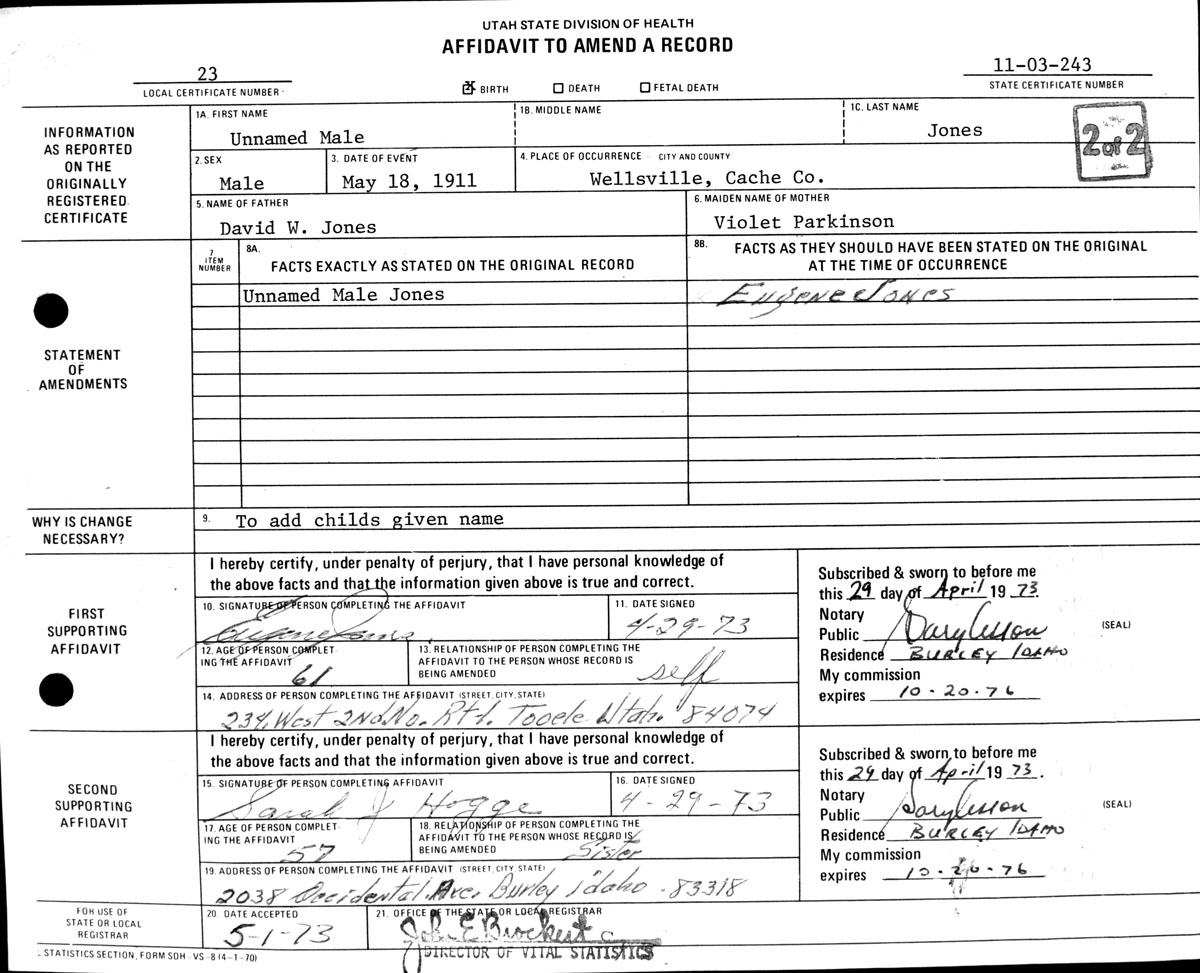 UTAH STATE DIVISION OF HEALTH
AFFIDAVIT TO AMEND A RECORD
23
LOCAL CERTIFICATE NUMBER
☒ BIRTH ☐ DEATH ☐ FETAL DEATH
11-03-243
STATE CERTIFICATE NUMBER
INFORMATION
AS REPORTED
ON THE
ORIGINALLY
REGISTERED
CERTIFICATE
1A. FIRST NAME
Unnamed Male
1B. MIDDLE NAME
1C. LAST NAME
Jones
2 of 2
2. SEX
Male
3. DATE OF EVENT
May 18, 1911
4. PLACE OF OCCURRENCE - CITY AND COUNTY
Wellsville, Cache Co.
5. NAME OF FATHER
David W. Jones
6. MAIDEN NAME OF MOTHER
Violet Parkinson
STATEMENT
OF
AMENDMENTS
7
ITEM
NUMBER
8A.
FACTS EXACTLY AS STATED ON THE ORIGINAL RECORD
8B. FACTS AS THEY SHOULD HAVE BEEN STATED ON THE ORIGINAL
AT THE TIME OF OCCURRENCE
Unnamed Male Jones
Eugene Jones
WHY IS CHANGE
NECESSARY?
9. To add childs given name
FIRST
SUPPORTING
AFFIDAVIT
I hereby certify, under penalty of perjury, that I have personal knowledge of
the above facts and that the information given above is true and correct.
10. SIGNATURE OF PERSON COMPLETING THE AFFIDAVIT
Eugene Jones
11. DATE SIGNED
4-29-73
12. AGE OF PERSON COMPLET-
ING THE AFFIDAVIT
61
13. RELATIONSHIP OF PERSON COMPLETING THE
AFFIDAVIT TO THE PERSON WHOSE RECORD IS
BEING AMENDED
self
14. ADDRESS OF PERSON COMPLETING THE AFFIDAVIT (STREET, CITY, STATE)
234 West 2nd. No. Rt 1. Tooele Utah. 84074
Subscribed & sworn to before me
this 29 day of April 19 73.
Notary
Public
Residence BURLEY IDAHO
My commission
expires 10-20-76
(SEAL)
SECOND
SUPPORTING
AFFIDAVIT
I hereby certify, under penalty of perjury, that I have personal knowledge of
the above facts and that the information given above is true and correct.
15. SIGNATURE OF PERSON COMPLETING AFFIDAVIT
Sarah J Hogge
16. DATE SIGNED
4-29-73
17. AGE OF PERSON COMPLET-
ING THE AFFIDAVIT
57
18. RELATIONSHIP OF PERSON COMPLETING THE
AFFIDAVIT TO THE PERSON WHOSE RECORD IS
BEING AMENDED
Sister
19. ADDRESS OF PERSON COMPLETING THE AFFIDAVIT (STREET, CITY, STATE)
2038 Occidental Ave. Burley Idaho - 83318
Subscribed & sworn to before me
this 29 day of April 19 73.
Notary
Public
Residence BURLEY IDAHO
My commission
expires 10-20-76
(SEAL)
FOR USE OF
STATE OR LOCAL
REGISTRAR
20. DATE ACCEPTED
5-1-73
21. OFFICE OF THE STATE OR LOCAL REGISTRAR
John E Brockert
DIRECTOR OF VITAL STATISTICS
STATISTICS SECTION, FORM SDH-VS-8 (4-1-70)